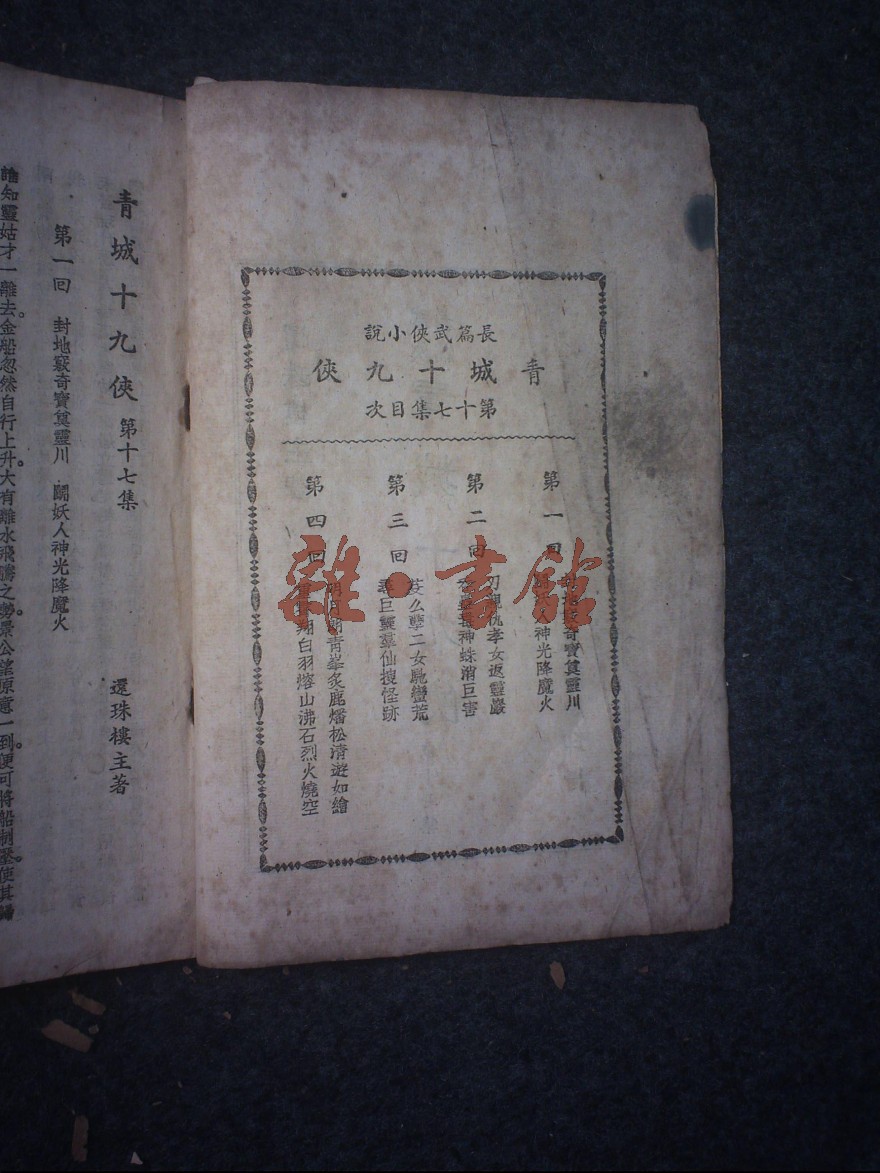 長篇武俠小說
青城十九俠
第十七集目次
第一回
封地竅奇寶奠靈川
鬭妖人神光降魔火
第二回
刃親仇孝女返靈巖
神蛛消巨害
第三回
芟么孽二女馳蠻荒
尋巨靈羣仙搜怪跡
第四回
明月朗青峯炙鹿燔松清遊如繪
翔白羽熔山沸石烈火燒空
雜·書館
青城十九俠 第十七集 還珠樓主著
第一回 封地竅奇寶奠靈川 鬭妖人神光降魔火
誰知靈姑才一離去。金船忽然自行上升。大有離水飛騰之勢。景公望原意一到。便可將船制